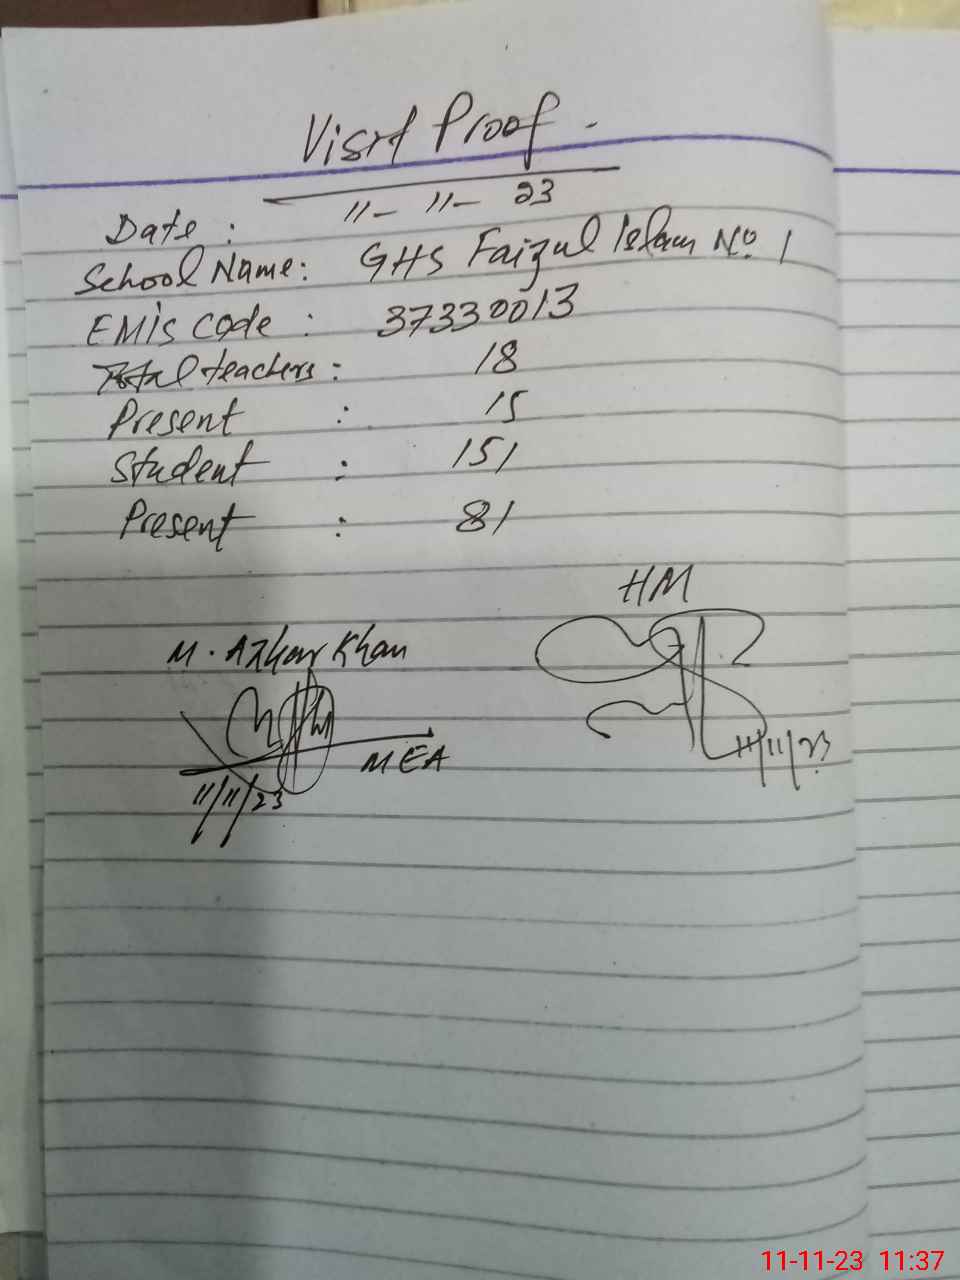 Visit Proof.
Date : 11-11-23
School Name: GHS Faizul Islam No. 1
EMIS Code : 37330013
Total teachers : 18
Present : 15
Student : 151
Present : 81
HM
M. Azhar Khan
11/11/23
MEA
11/11/23
11-11-23 11:37